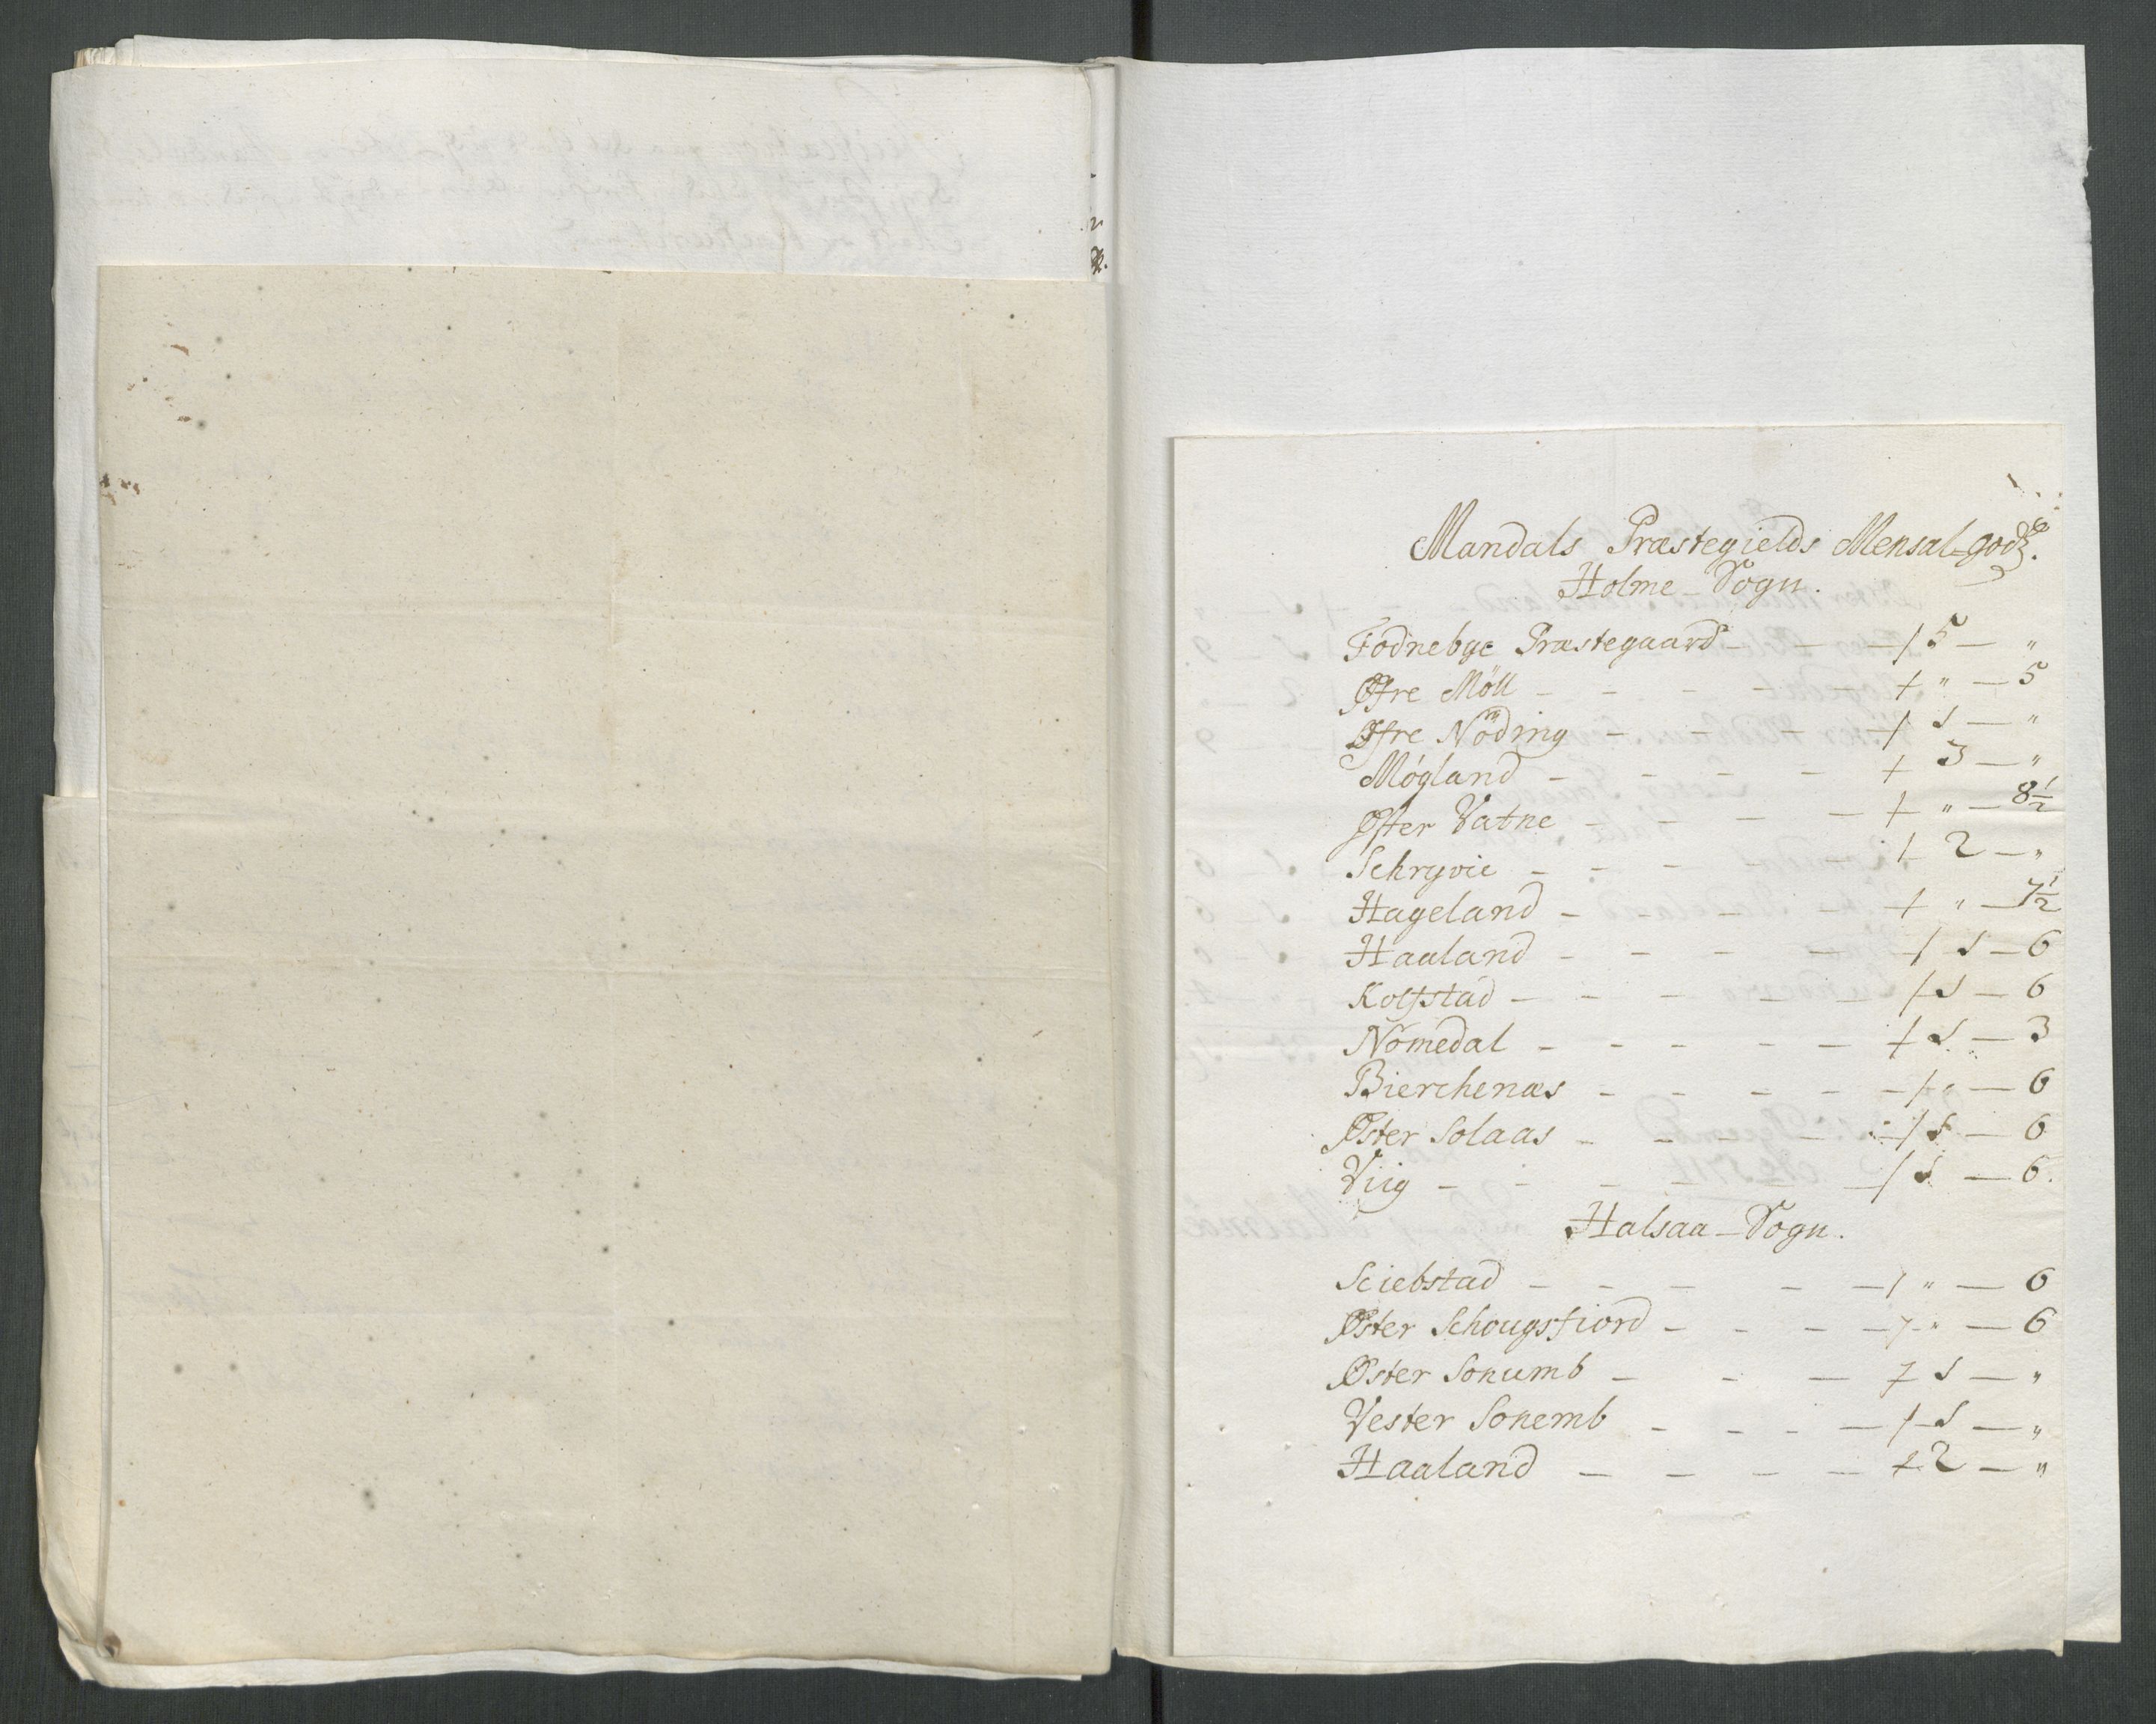 Mandals Præstegields Mensal-godz.
Holme-Sogn.
Fodnebye Præstegaard - - - / 5 - "
Øfre Möll - - - - + " - 5
Øfre Nöding - - - - / 1 - "
Mögland - - - - + 3 - "
Øster Vatne - - - - + " - 8½
Schryvie - - - - + 2 - "
Hageland - - - - + " - 7½
Haaland - - - - / 1 - 6
Kolfstad - - - - - / 1 - 6
Nomedal - - - - - + 1 - 3
Bierchenæs - - - - - / " - 6
Øster Solaas - - - - / 1 - 6
Viig - - - - - / 1 - 6.
Halsaa-Sogn.
Sciebstad - - - - - / " - 6
Øster Schougsfiord - - - - / " - 6
Øster Sonumb - - - / 1 - "
Vester Sonemb - - - - / 1 - "
Haaland - - - - + 2 - "